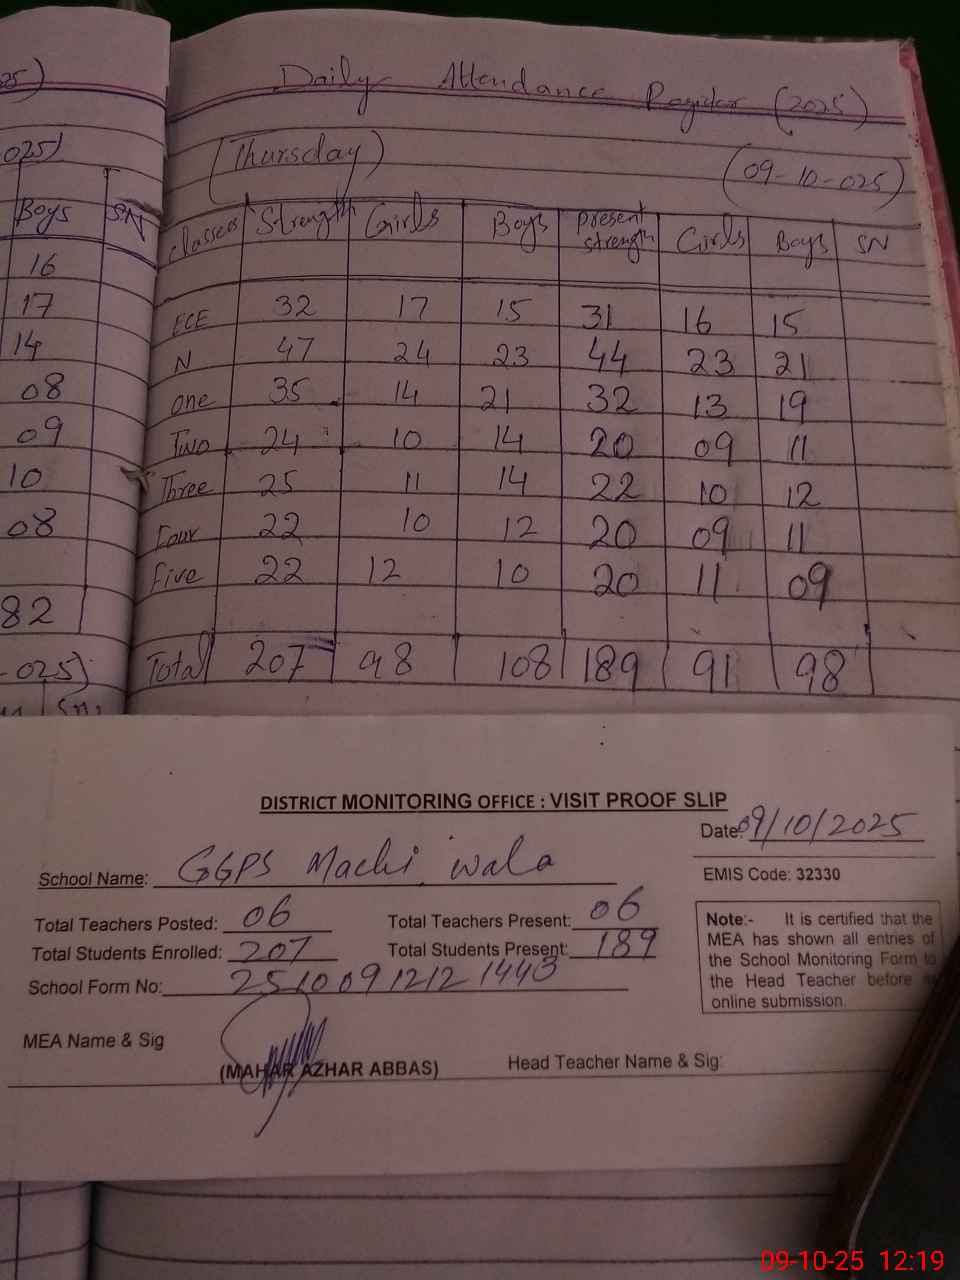 Daily Attendance Regidar (2025)
25)
(Thursday) (09-10-025)
025)
Boys SN
Classes Strength Girls Boys Present strength Girls Boys SN
16
ECE 32 17 15 31 16 15
17
N 47 24 23 44 23 21
14
One 35 14 21 32 13 19
08
Two 24 10 14 20 09 11
09
Three 25 11 14 22 10 12
10
Four 22 10 12 20 09 11
08
Five 22 12 10 20 11 09
82
Total 207 98 108 189 91 98
-025)
Sn.
DISTRICT MONITORING OFFICE : VISIT PROOF SLIP
Date: 09/10/2025
School Name: GGPS Machi wala
EMIS Code: 32330
Total Teachers Posted: 06 Total Teachers Present: 06
Total Students Enrolled: 207 Total Students Present: 189
School Form No: 2510091212 1443
Note:- It is certified that the
MEA has shown all entries of
the School Monitoring Form to
the Head Teacher before
online submission.
MEA Name & Sig
(MAHAR AZHAR ABBAS) Head Teacher Name & Sig:
09-10-25 12:19